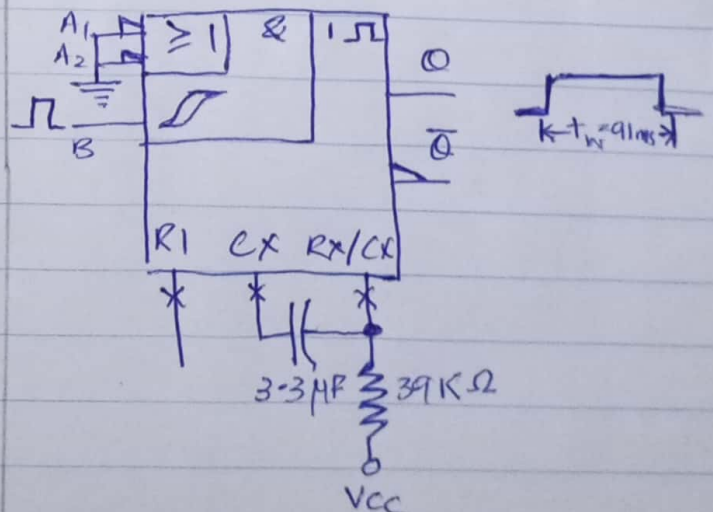 A1 ≥1 & 1
A2
Q
B
Q̅
tw=91ms
RI CX RX/CX
3.3μF 39KΩ
VCC